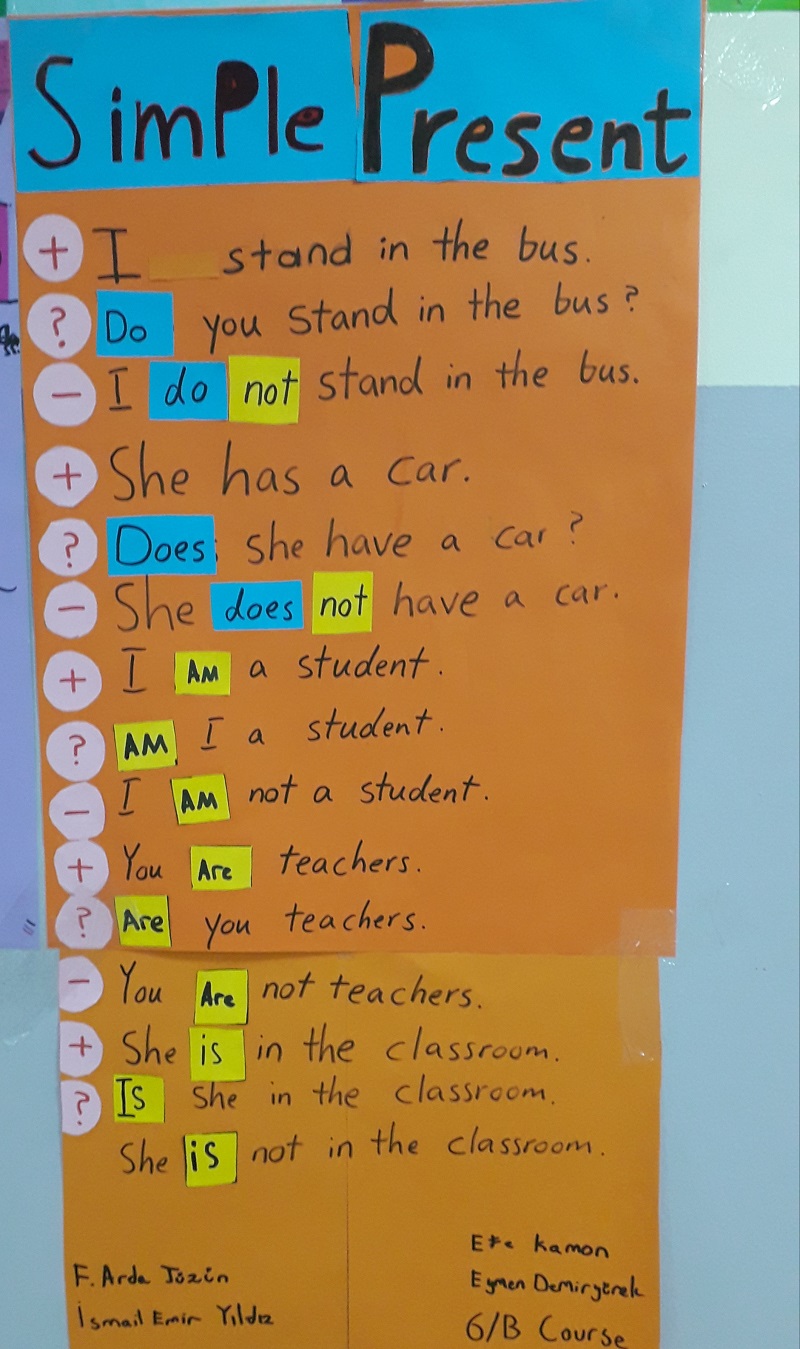 Simple Present
+ I stand in the bus.
? Do you stand in the bus?
- I do not stand in the bus.
+ She has a car.
? Does she have a car?
- She does not have a car.
+ I AM a student.
? AM I a student.
- I AM not a student.
+ You Are teachers.
? Are you teachers.
- You Are not teachers.
+ She is in the classroom.
? Is she in the classroom.
She is not in the classroom.
F. Arda
İsmail Emir Yıldız
Kamon
Eymen
6/B Course